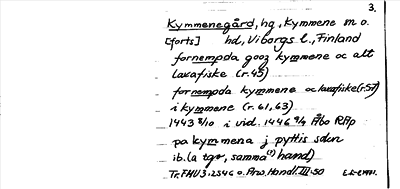 3.
Kymmenegård, hg, Kymmene m o.
[forts] hd, Viborgs l., Finland
fornempda gooz kymmene oc alt
laxafiske (r. 45)
fornempda kymmene oc laxafiske (r. 57)
i kymmene (r. 61, 63)
1443 8/10 i vid. 1446 9/4 Åbo RAp
pa kymmena j pyttis sokn
ib. (a tgr, samma(?) hand)
Tr. FMU 3. 2546 o. Arw. Handl. III: 50